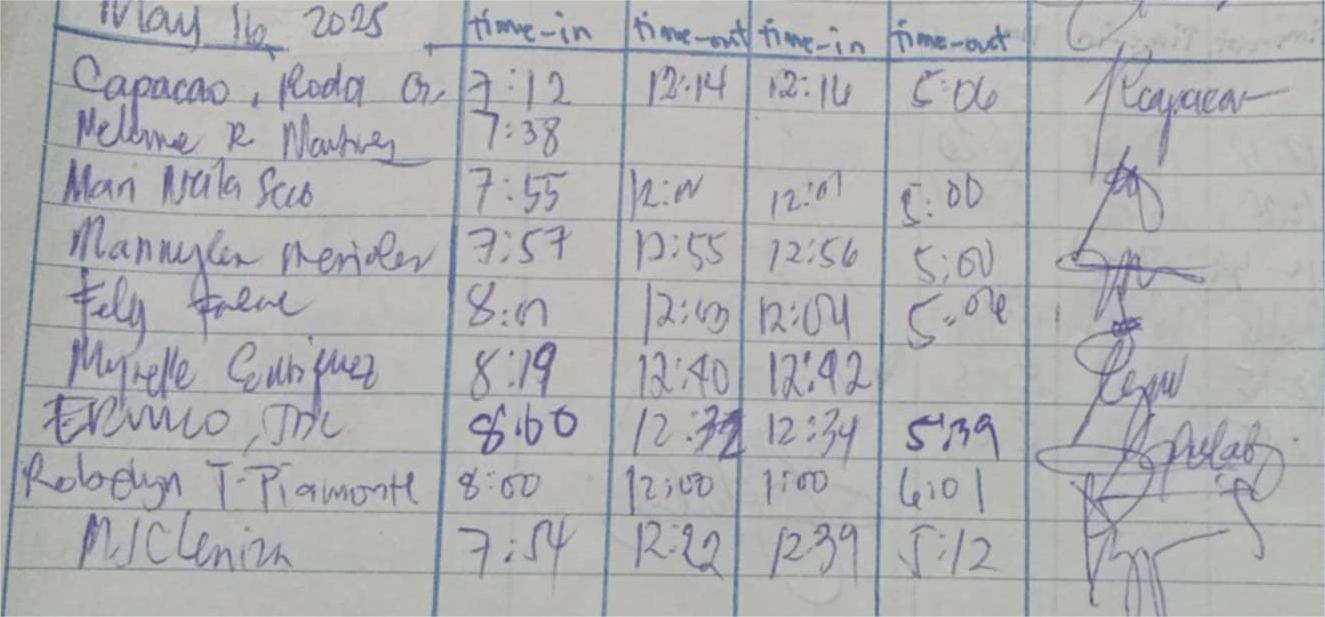 May 16, 2025 time-in time-out time-in time-out
Capacao, Roda G. 7:12 12:14 12:16 5:06 Rcapacao
R. 7:38
Mari Neila Seco 7:55 12:01 12:01 5:00
Mannylen 7:57 12:55 12:56 5:00
Fely 8:01 12:03 12:04 5:04
Myrelle Enriquez 8:19 12:40 12:42
8:00 12:32 12:34 5:39
Robelyn T. Piamonte 8:00 12:00 1:00 6:01
MJCleniza 7:54 12:22 12:39 5:12